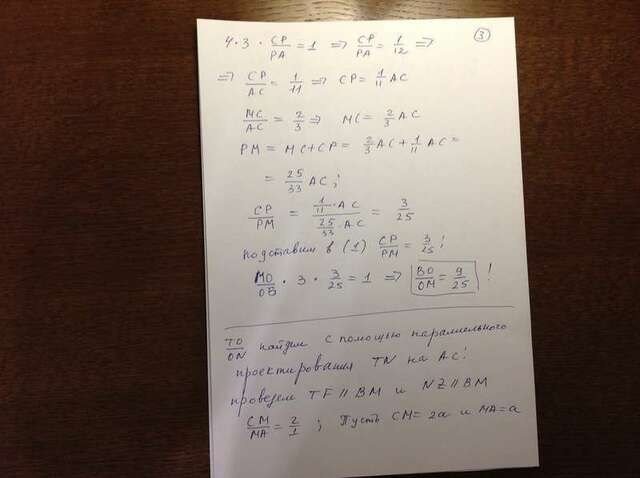 4·3·CP/PA=1 ⇒ CP/PA=1/12 ⇒ ③
⇒ CP/AC=1/11 ⇒ CP=1/11 AC
MC/AC=2/3 ⇒ MC=2/3 AC
PM=MC+CP=2/3 AC+1/11 AC=
=25/33 AC;
CP/PM = (1/11·AC)/(25/33·AC) = 3/25
подставим в (1) CP/PM=3/25!
MO/OB·3·3/25=1 ⇒ BO/OM=9/25 !
TO/ON найдем с помощью параллельного
проектирования TN на AC!
проведем TF∥BM и NZ∥BM
CM/MA=2/1; Пусть CM=2a и MA=a